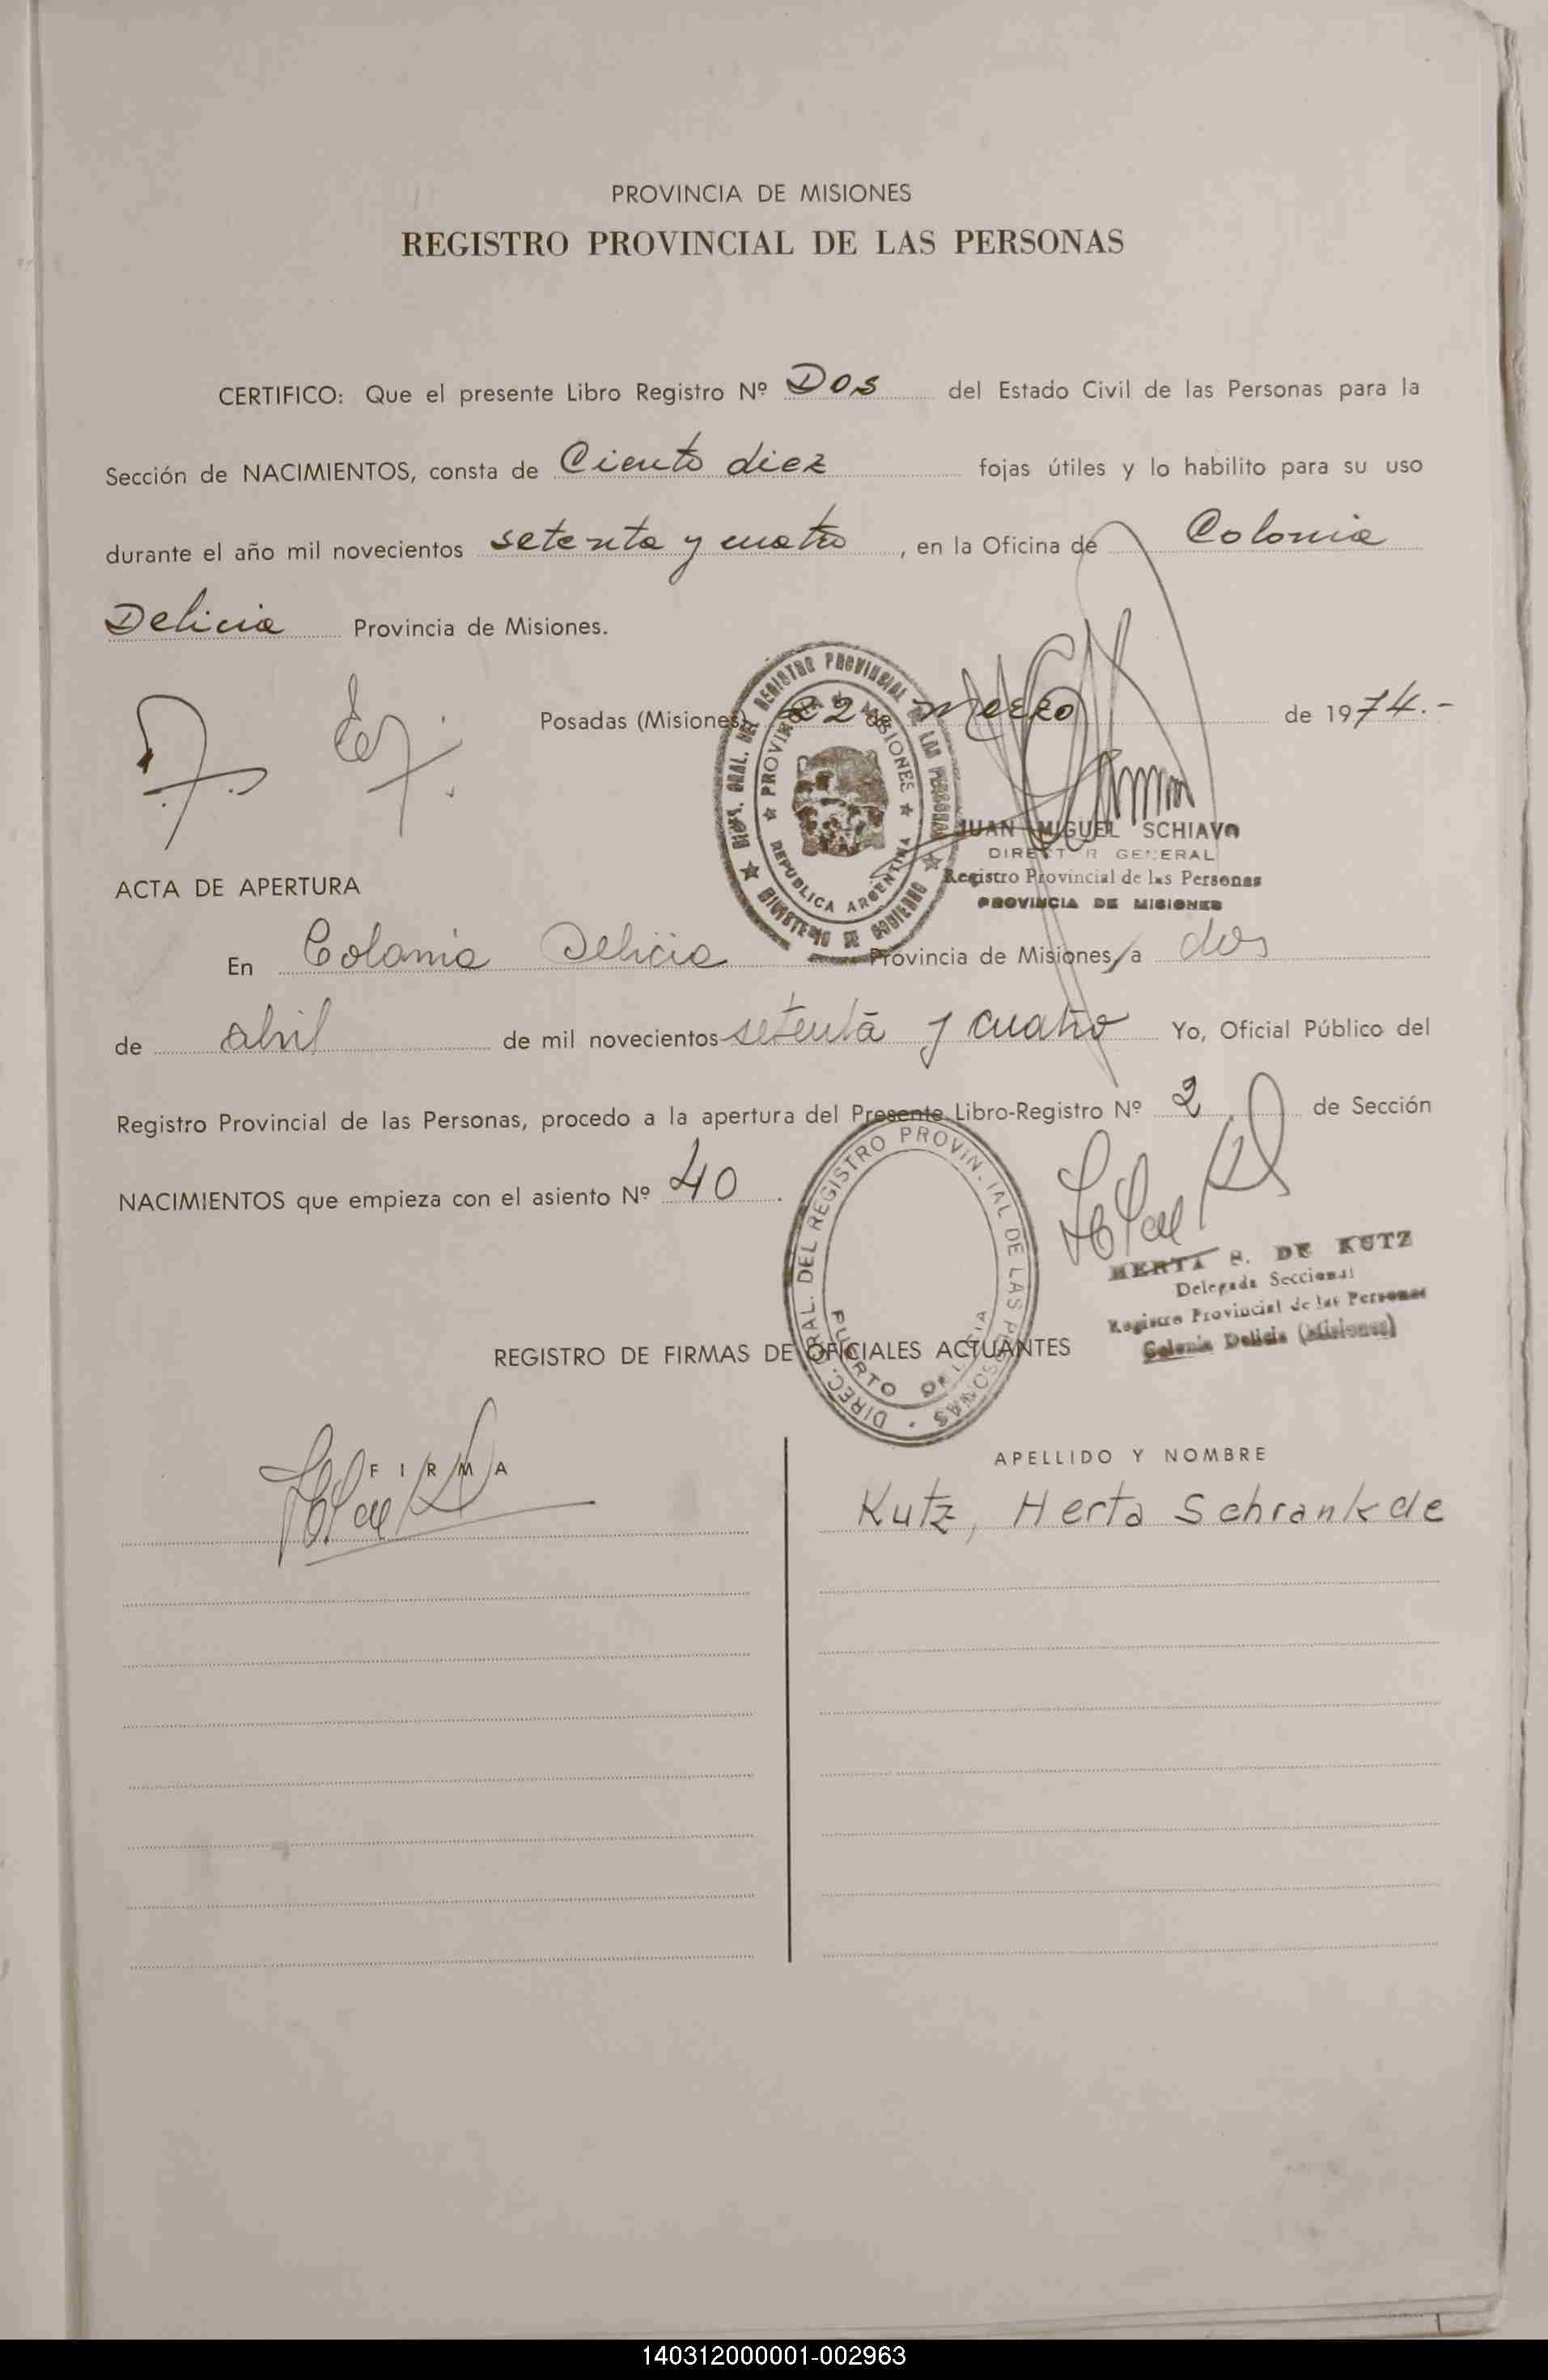 PROVINCIA DE MISIONES
REGISTRO PROVINCIAL DE LAS PERSONAS
CERTIFICO: Que el presente Libro Registro Nº Dos del Estado Civil de las Personas para la
Sección de NACIMIENTOS, consta de Ciento diez fojas útiles y lo habilito para su uso
durante el año mil novecientos setenta y cuatro, en la Oficina de Colonia
Delicia Provincia de Misiones.
Posadas (Misiones) 22 de marzo de 1974.-
DIREC. GRAL. DEL REGISTRO PROVINCIAL DE LAS PERSONAS
PROVINCIA DE MISIONES
REPUBLICA ARGENTINA
MINISTERIO DE GOBIERNO
JUAN MIGUEL SCHIAVO
DIRECTOR GENERAL
Registro Provincial de las Personas
PROVINCIA DE MISIONES
ACTA DE APERTURA
En Colonia Delicia Provincia de Misiones, a dos
de abril de mil novecientos setenta y cuatro Yo, Oficial Público del
Registro Provincial de las Personas, procedo a la apertura del Presente Libro-Registro Nº 2 de Sección
NACIMIENTOS que empieza con el asiento Nº 40.
DIREC. GRAL. DEL REGISTRO PROVINCIAL DE LAS PERSONAS
PUERTO DELICIA
HERTA S. DE KUTZ
Delegada Seccional
Registro Provincial de las Personas
Colonia Delicia (Misiones)
REGISTRO DE FIRMAS DE OFICIALES ACTUANTES
FIRMA
APELLIDO Y NOMBRE
Kutz, Herta Schrank de
140312000001-002963